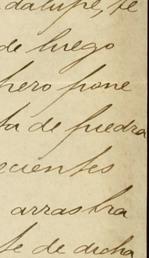 dalupe, te
de luego
hero pone
ta de piedra
ecientes
arrastra
te de dicha